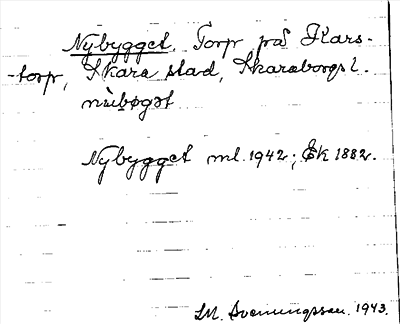 Nybygget. Torp på Kars-
-torp, Skara stad, Skaraborgs l.
nỳbøgət
Nybygget ml. 1942; Ek 1882.
M. Svenungsson. 1943.